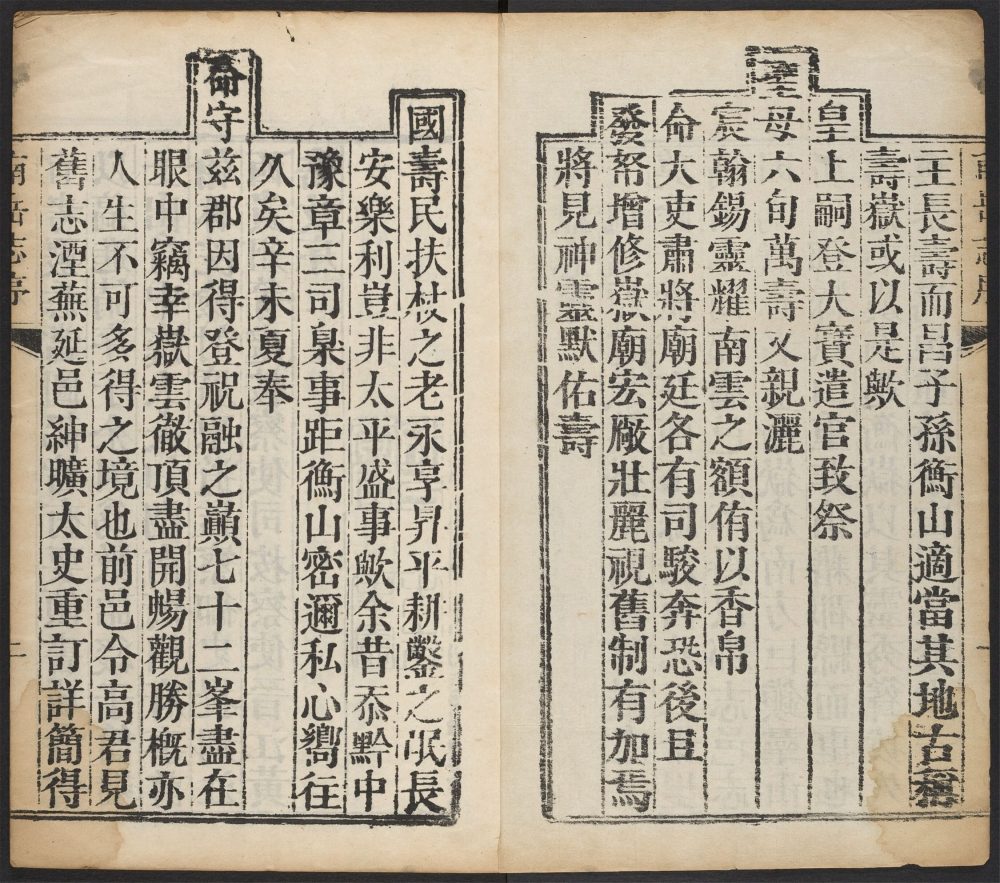 南岳志序
王長壽而昌子孫衡山適當其地古稱
壽嶽或以是歟
皇上嗣登大寶遣官致祭
聖母六旬萬壽又親灑
宸翰錫靈耀南雲之額侑以香帛
命大吏肅將廟廷各有司駿奔恐後且
發帑增修嶽廟宏厰壯麗視舊制有加焉
將見神靈默佑壽
國壽民扶杖之老永享昇平耕鑿之氓長
安樂利豈非太平盛事歟余昔忝黔中
豫章三司臬事距衡山密邇私心嚮往
久矣辛未夏奉
命守茲郡因得登祝融之巔七十二峯盡在
眼中竊幸嶽雲徹頂盡開暢觀勝槪亦
人生不可多得之境也前邑令高君見
舊志湮蕪延邑紳曠太史重訂詳簡得
南岳志序